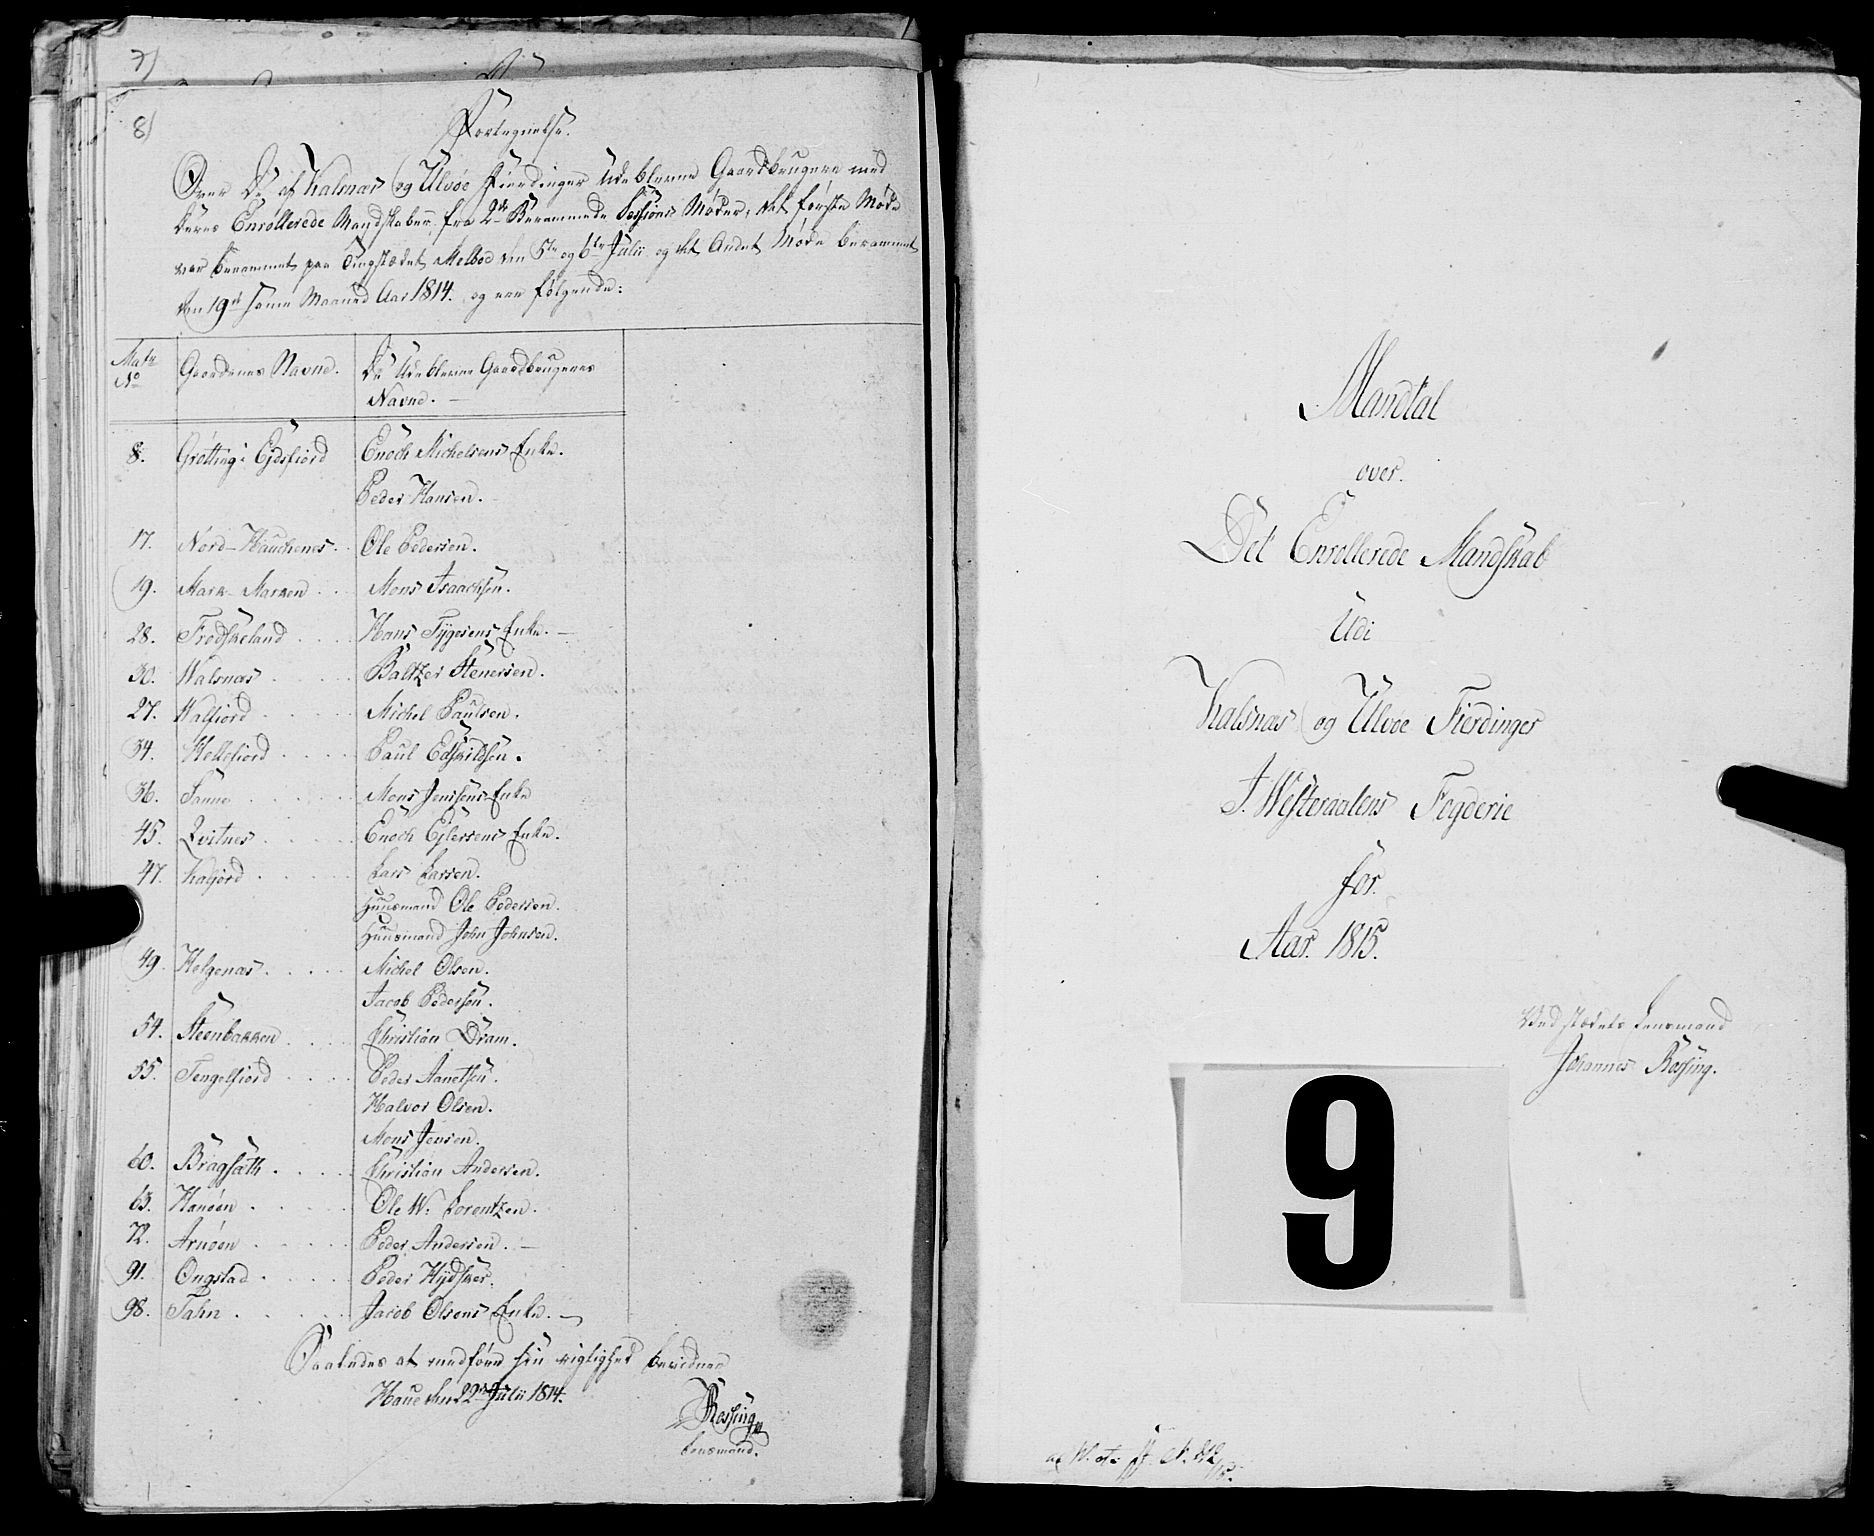 7)
8)
Fortegnelse.
Over De af Kalsnæs og Ulvøe Fierdinger Udeblevne Gaardbrugere med
deres Enrollerede Mandskaber, fra 2de Berammede Sessions Møder, det første Møde
var berammet paa Tingstædet Melboe den 5te og 6te Julii og det Andet Møde berammet
den 19de samme Maaned Aar 1814. og ere følgende:
Matr No
Gaardenes Navne.
De Udeblevne Gaardbrugeres Navne. —
8. Grøtting i Ejdsfiord Enoch Michelsens Enke.
Peder Hansen.
17. Nord-Hauchenes. Ole Pedersen.
19. Mark-Marken . . Mons Isaachsen.
28. Frodskeland . . . Hans Tygesens Enke. —
30. Walsnæs . . . . Baltzer Stenersen.
27. Walfiord . . . . Michel Paulsen.
34. Kellefiord . . . . Paul Edskildsen.
36. Sanne . . . . . Mons Jenssens Enke
45. Qvitnes . . . . . Enoch Ejlersens Enke.
47. Kaljord . . . . . Lars Larsen.
Huusmand Ole Pedersen.
Huusmand John Johnsen.
49. Helgenæs . . . . . Michel Olsen.
Jacob Pedersen.
54. Steenbakken . . . . Christian Dram.
55. Tengelfiord . . . . Peder Aanetsen.
Halvor Olsen.
Mons Jensen.
60. Bragsæth . . . . . Christian Andersen.
63. Hanøen . . . . . Ole W: Lorentzen.
72. Arnøen . . . . . Peder Andersen. —
91. Ongstad . . . . . Peder Hydsker.
98. Fahn . . . . . . Jacob Olsens Enke. —
Saaledes at medføre sin rigtighed bevidner
Haue den 22de Julii 1814.
Røssing
Lensmand.
Mandtal
over.
Det Enrollerede Mandskab
Udi
Kalsnæs og Ulvøe Fierdinger
I Westeraalens Fogderie
for.
Aar. 1815.
Ved stædets Lensmand
Johannes Røssing.
9